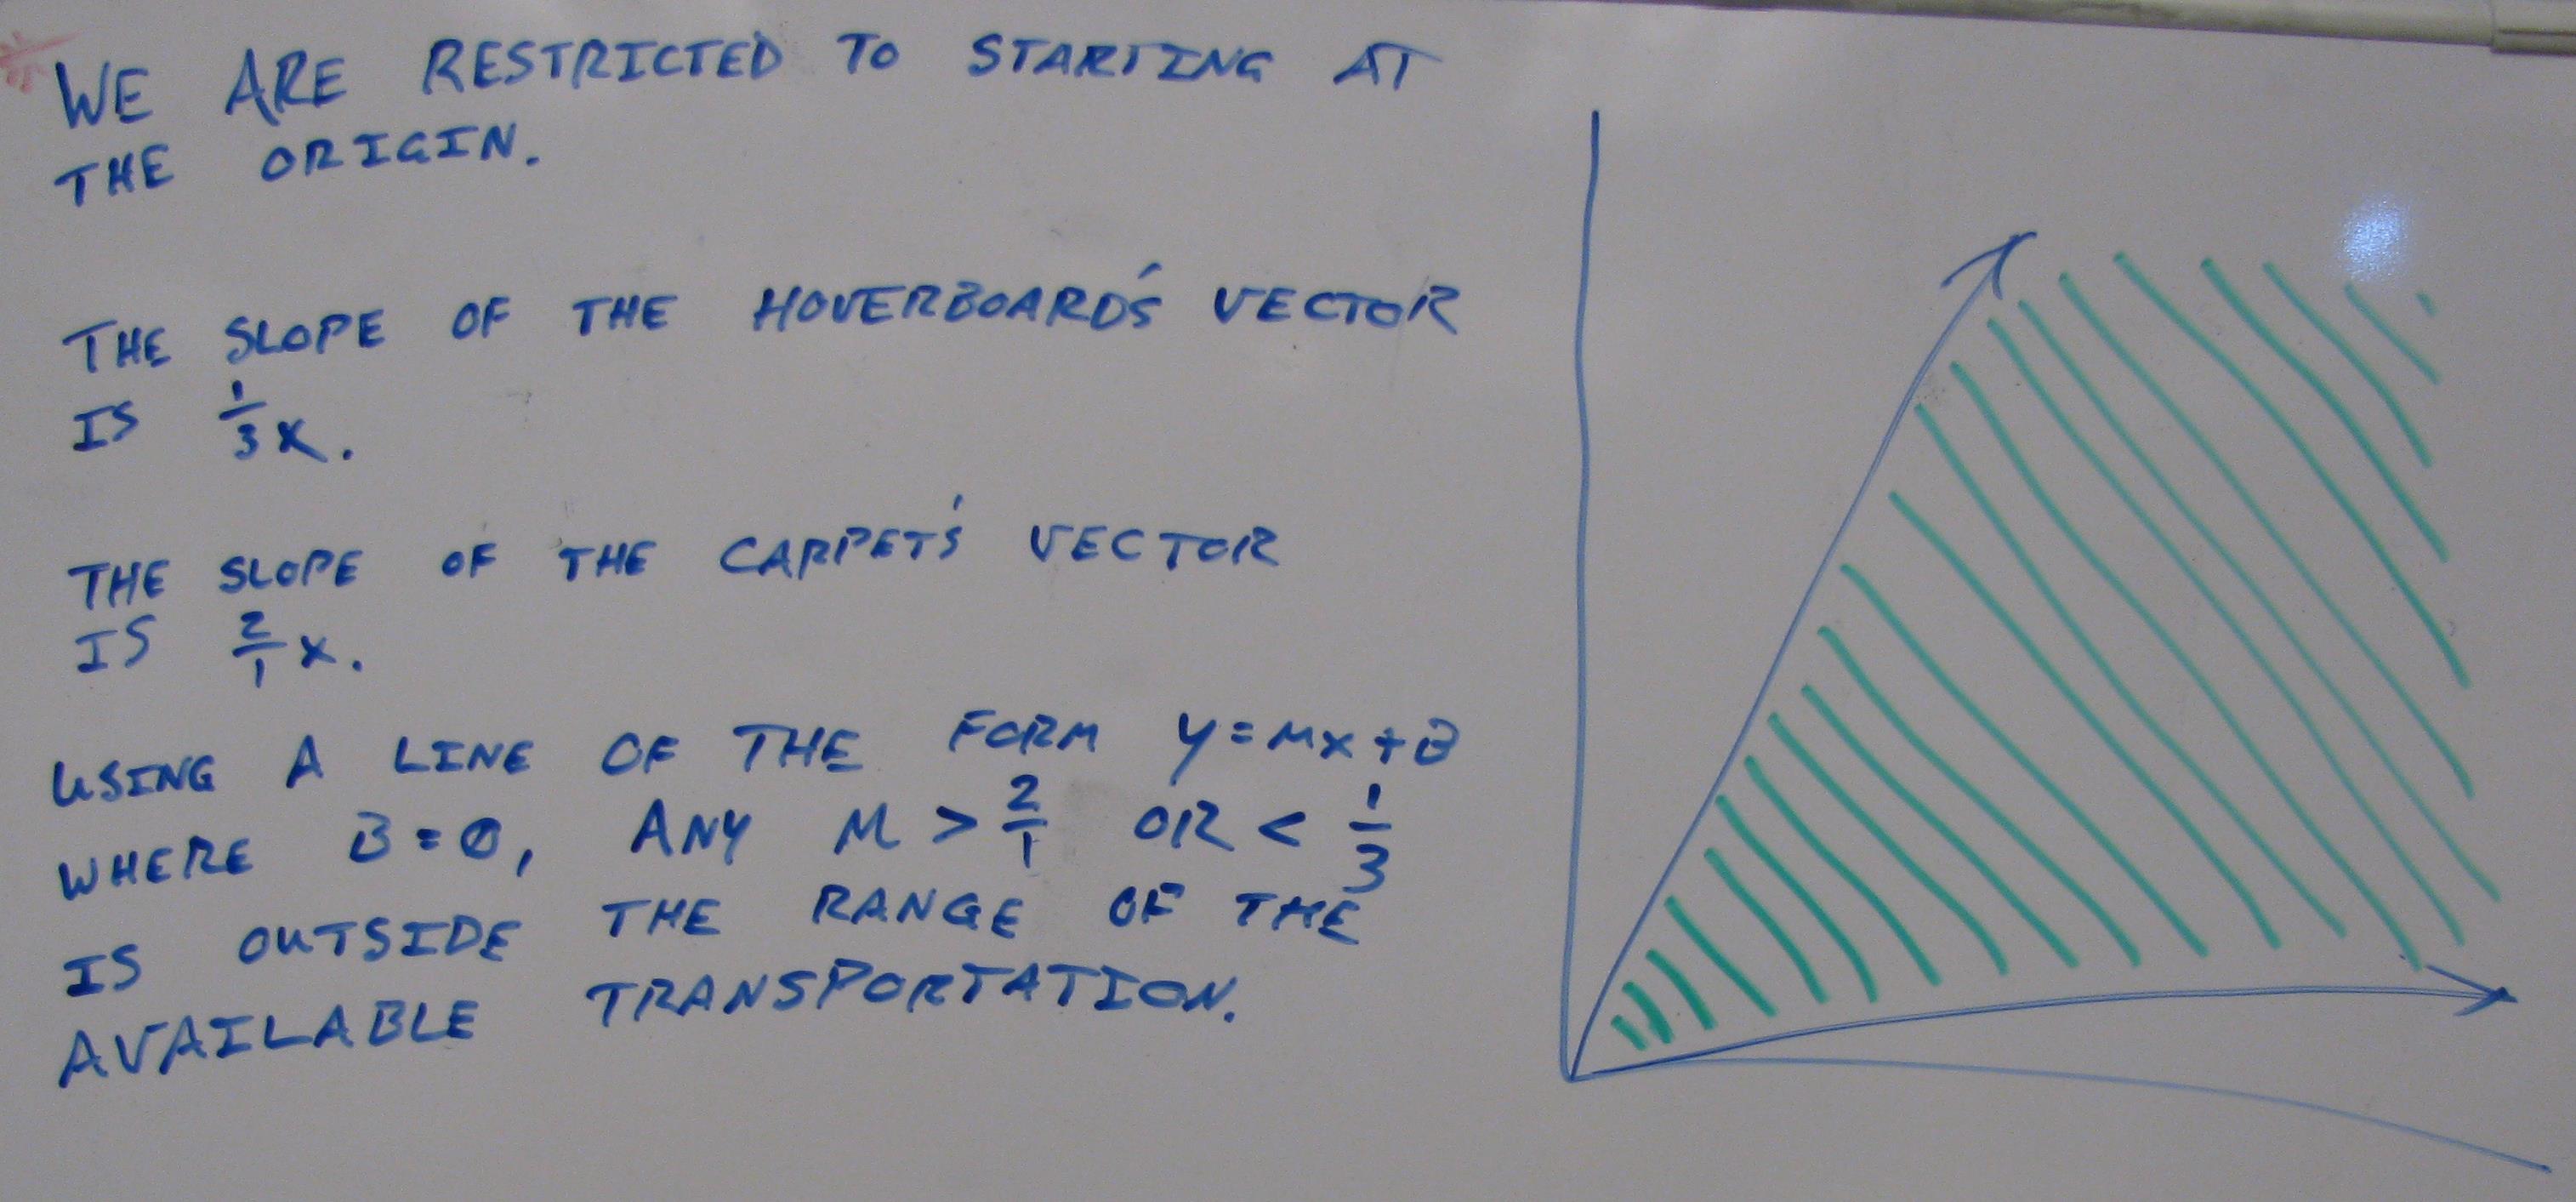 WE ARE RESTRICTED TO STARTING AT
THE ORIGIN.
THE SLOPE OF THE HOVERBOARD'S VECTOR
IS 1/3 X.
THE SLOPE OF THE CARPET'S VECTOR
IS 2/1 X.
USING A LINE OF THE FORM Y=MX+B
WHERE B=0, ANY M > 2/1 OR < 1/3
IS OUTSIDE THE RANGE OF THE
AVAILABLE TRANSPORTATION.